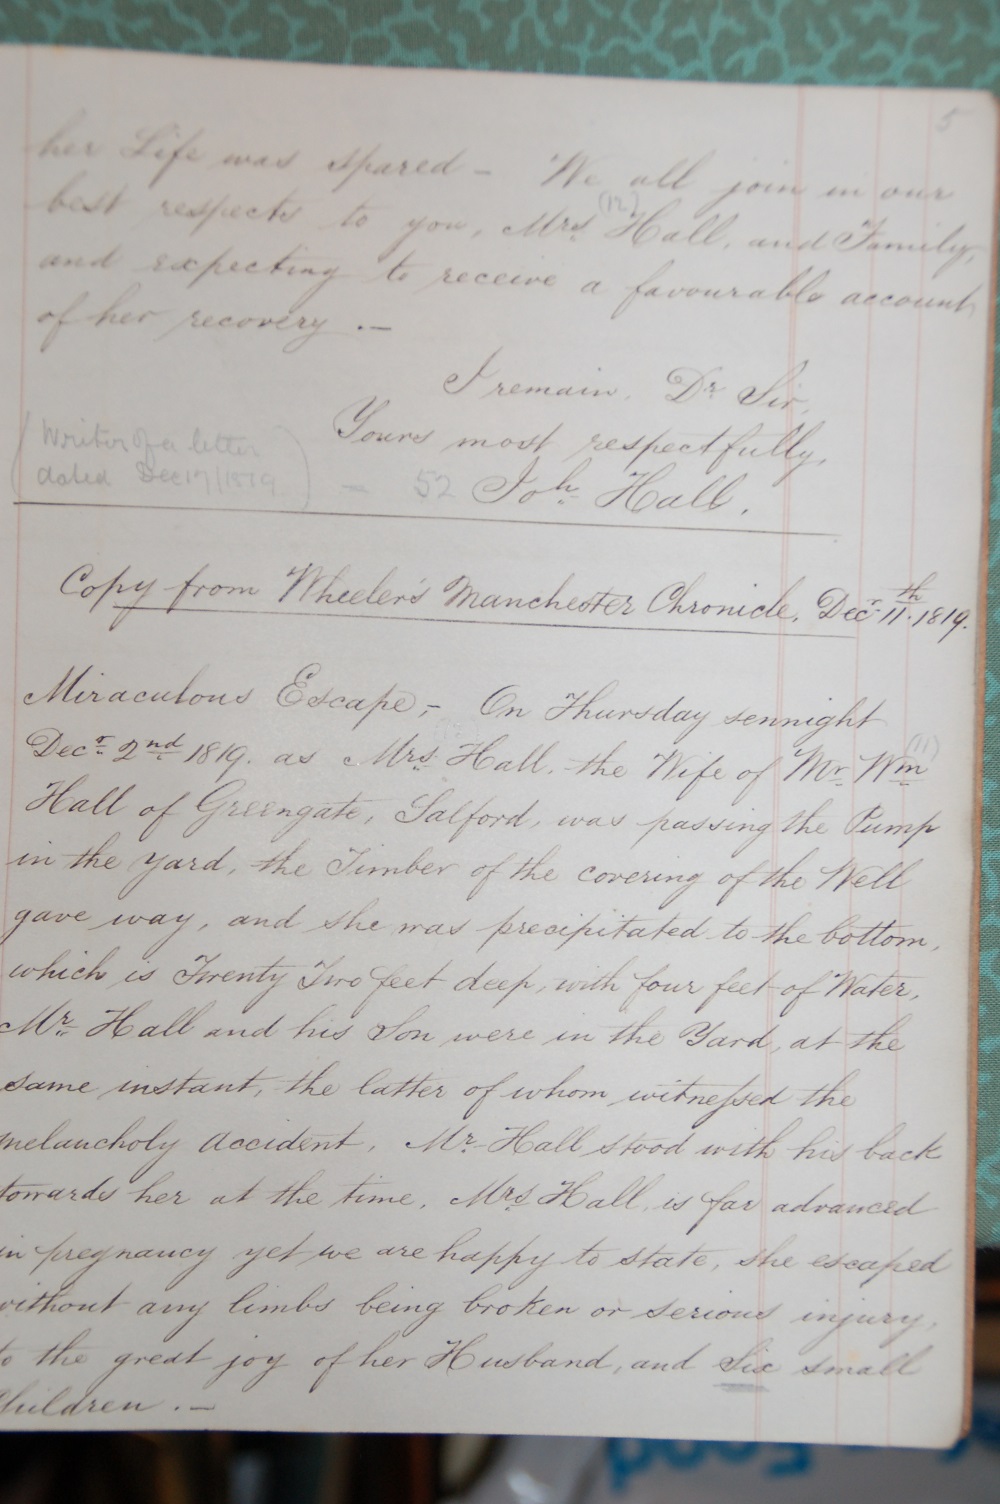 5
her Life was spared – We all join in our
(12)
best respects to you, Mrs. Hall, and Family,
and expecting to receive a favourable account
of her recovery .—
I remain, Dr. Sir,
Yours most respectfully,
(Writer of a letter
dated Dec 17/1819) – 52 Joh. Hall.
Copy from Wheeler's Manchester Chronicle, Decr. 11th. 1819.
Miraculous Escape,– On Thursday sennight
Decr. 2nd 1819. as Mrs. Hall, the Wife of Mr. Wm
(11)
Hall of Greengate, Salford, was passing the Pump
in the yard, the Timber of the covering of the Well
gave way, and she was precipitated to the bottom,
which is Twenty Two feet deep, with four feet of Water,
Mr. Hall and his Son were in the Yard, at the
same instant, the latter of whom witneſsed the
melancholy accident, Mr. Hall stood with his back
towards her at the time, Mrs. Hall, is far advanced
in pregnancy yet we are happy to state, she escaped
without any limbs being broken or serious injury,
to the great joy of her Husband, and Six small
Children .—